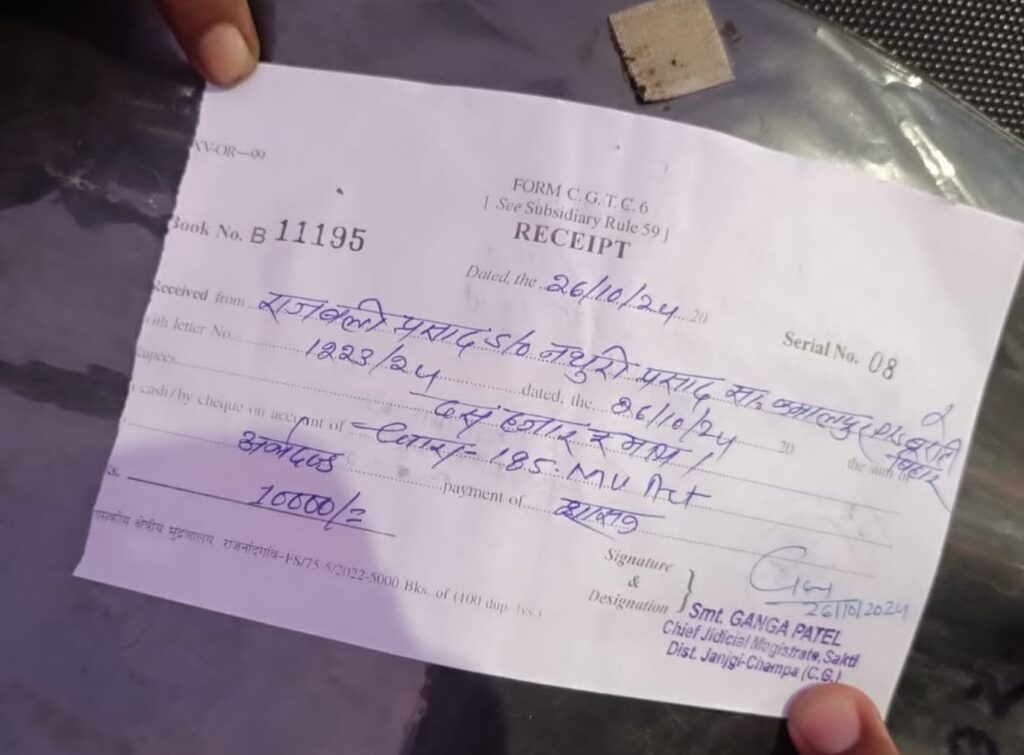 XV-OR—99
FORM C. G. T. C. 6
[ See Subsidiary Rule 59 ]
RECEIPT
Book No. B 11195
Dated, the 26/10/24 20
Serial No. 08
Received from राजबली प्रसाद S/o नथुरी प्रसाद सा.
with letter No. 1223/24 dated, the 26/10/24 20 the sum of
Rupees दस हजार रू मात्र /
cash/by cheque on account of धारा- 185 M V Act
अर्थदण्ड payment of
Rs. 10000/=
शासकीय क्षेत्रीय मुद्रणालय राजनांदगांव-FS/75-5/2022-5000 Bks. of (100 dup. lvs.)
Signature
&
Designation
26/10/2024
Smt. GANGA PATEL
Chief Jidicial Magistrate, Sakti
Dist. Janjgi-Champa (C.G.)